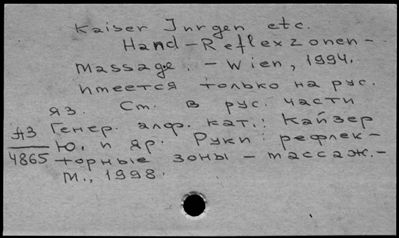 Kaiser Jurgen etc.
Hand-Reflexzonen-
massage. - Wien, 1994.
Имеется только на рус.
яз. См. в рус. части
Генер. алф. кат.: Кайзер
Ю. и др. Руки: рефлек-
торные зоны - массаж. -
М., 1998.
А3
4865